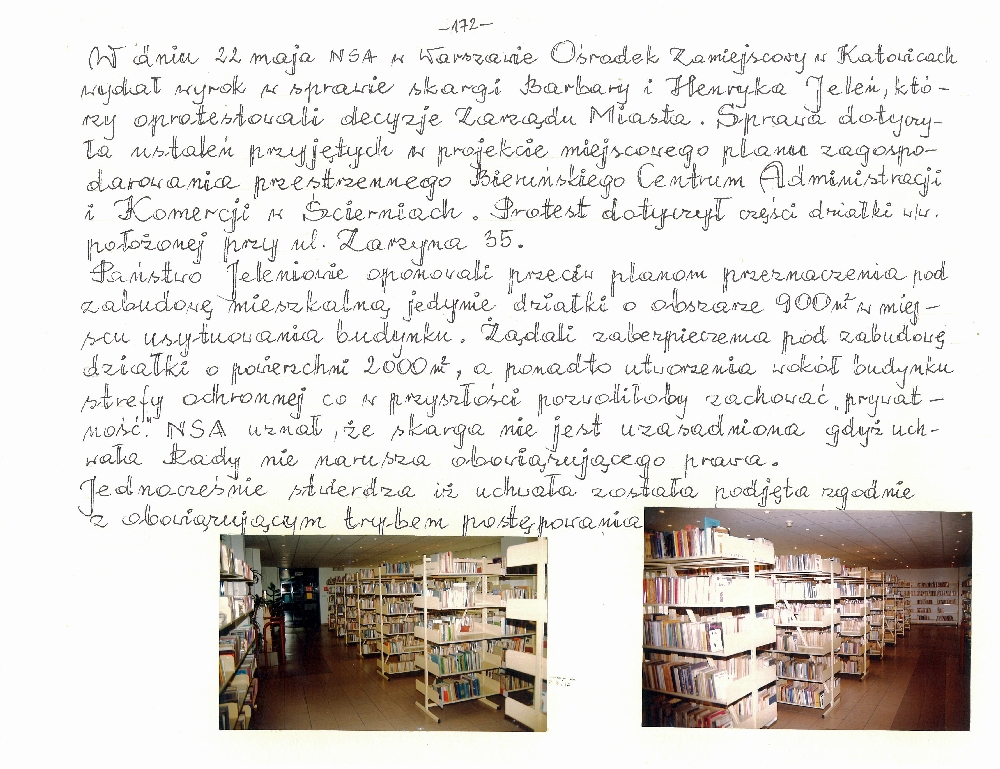 -172-
W dniu 22 maja NSA w Warszawie Ośrodek Zamiejscowy w Katowicach
wydał wyrok w sprawie skargi Barbary i Henryka Jeleń, któ-
rzy oprotestowali decyzje Zarządu Miasta. Sprawa dotyczy-
ła ustaleń przyjętych w projekcie miejscowego planu zagospo-
darowania przestrzennego Bieruńskiego Centrum Administracji
i Komercji w Ścierniach. Protest dotyczył części działki w/w.
położonej przy ul. Zarzyna 35.
Państwo Jeleniowie oponowali przeciw planom przeznaczenia pod
zabudowę mieszkalną jedynie działki o obszarze 900m² w miej-
scu usytuowania budynku. Żądali zabezpieczenia pod zabudowę
działki o powierzchni 2000m², a ponadto utworzenia wokół budynku
strefy ochronnej co w przyszłości pozwoliłoby zachować „prywat-
ność." NSA uznał, że skarga nie jest uzasadniona gdyż uch-
wała Rady nie narusza obowiązującego prawa.
Jednocześnie stwierdza iż uchwała została podjęta zgodnie
z obowiązującym trybem postępowania